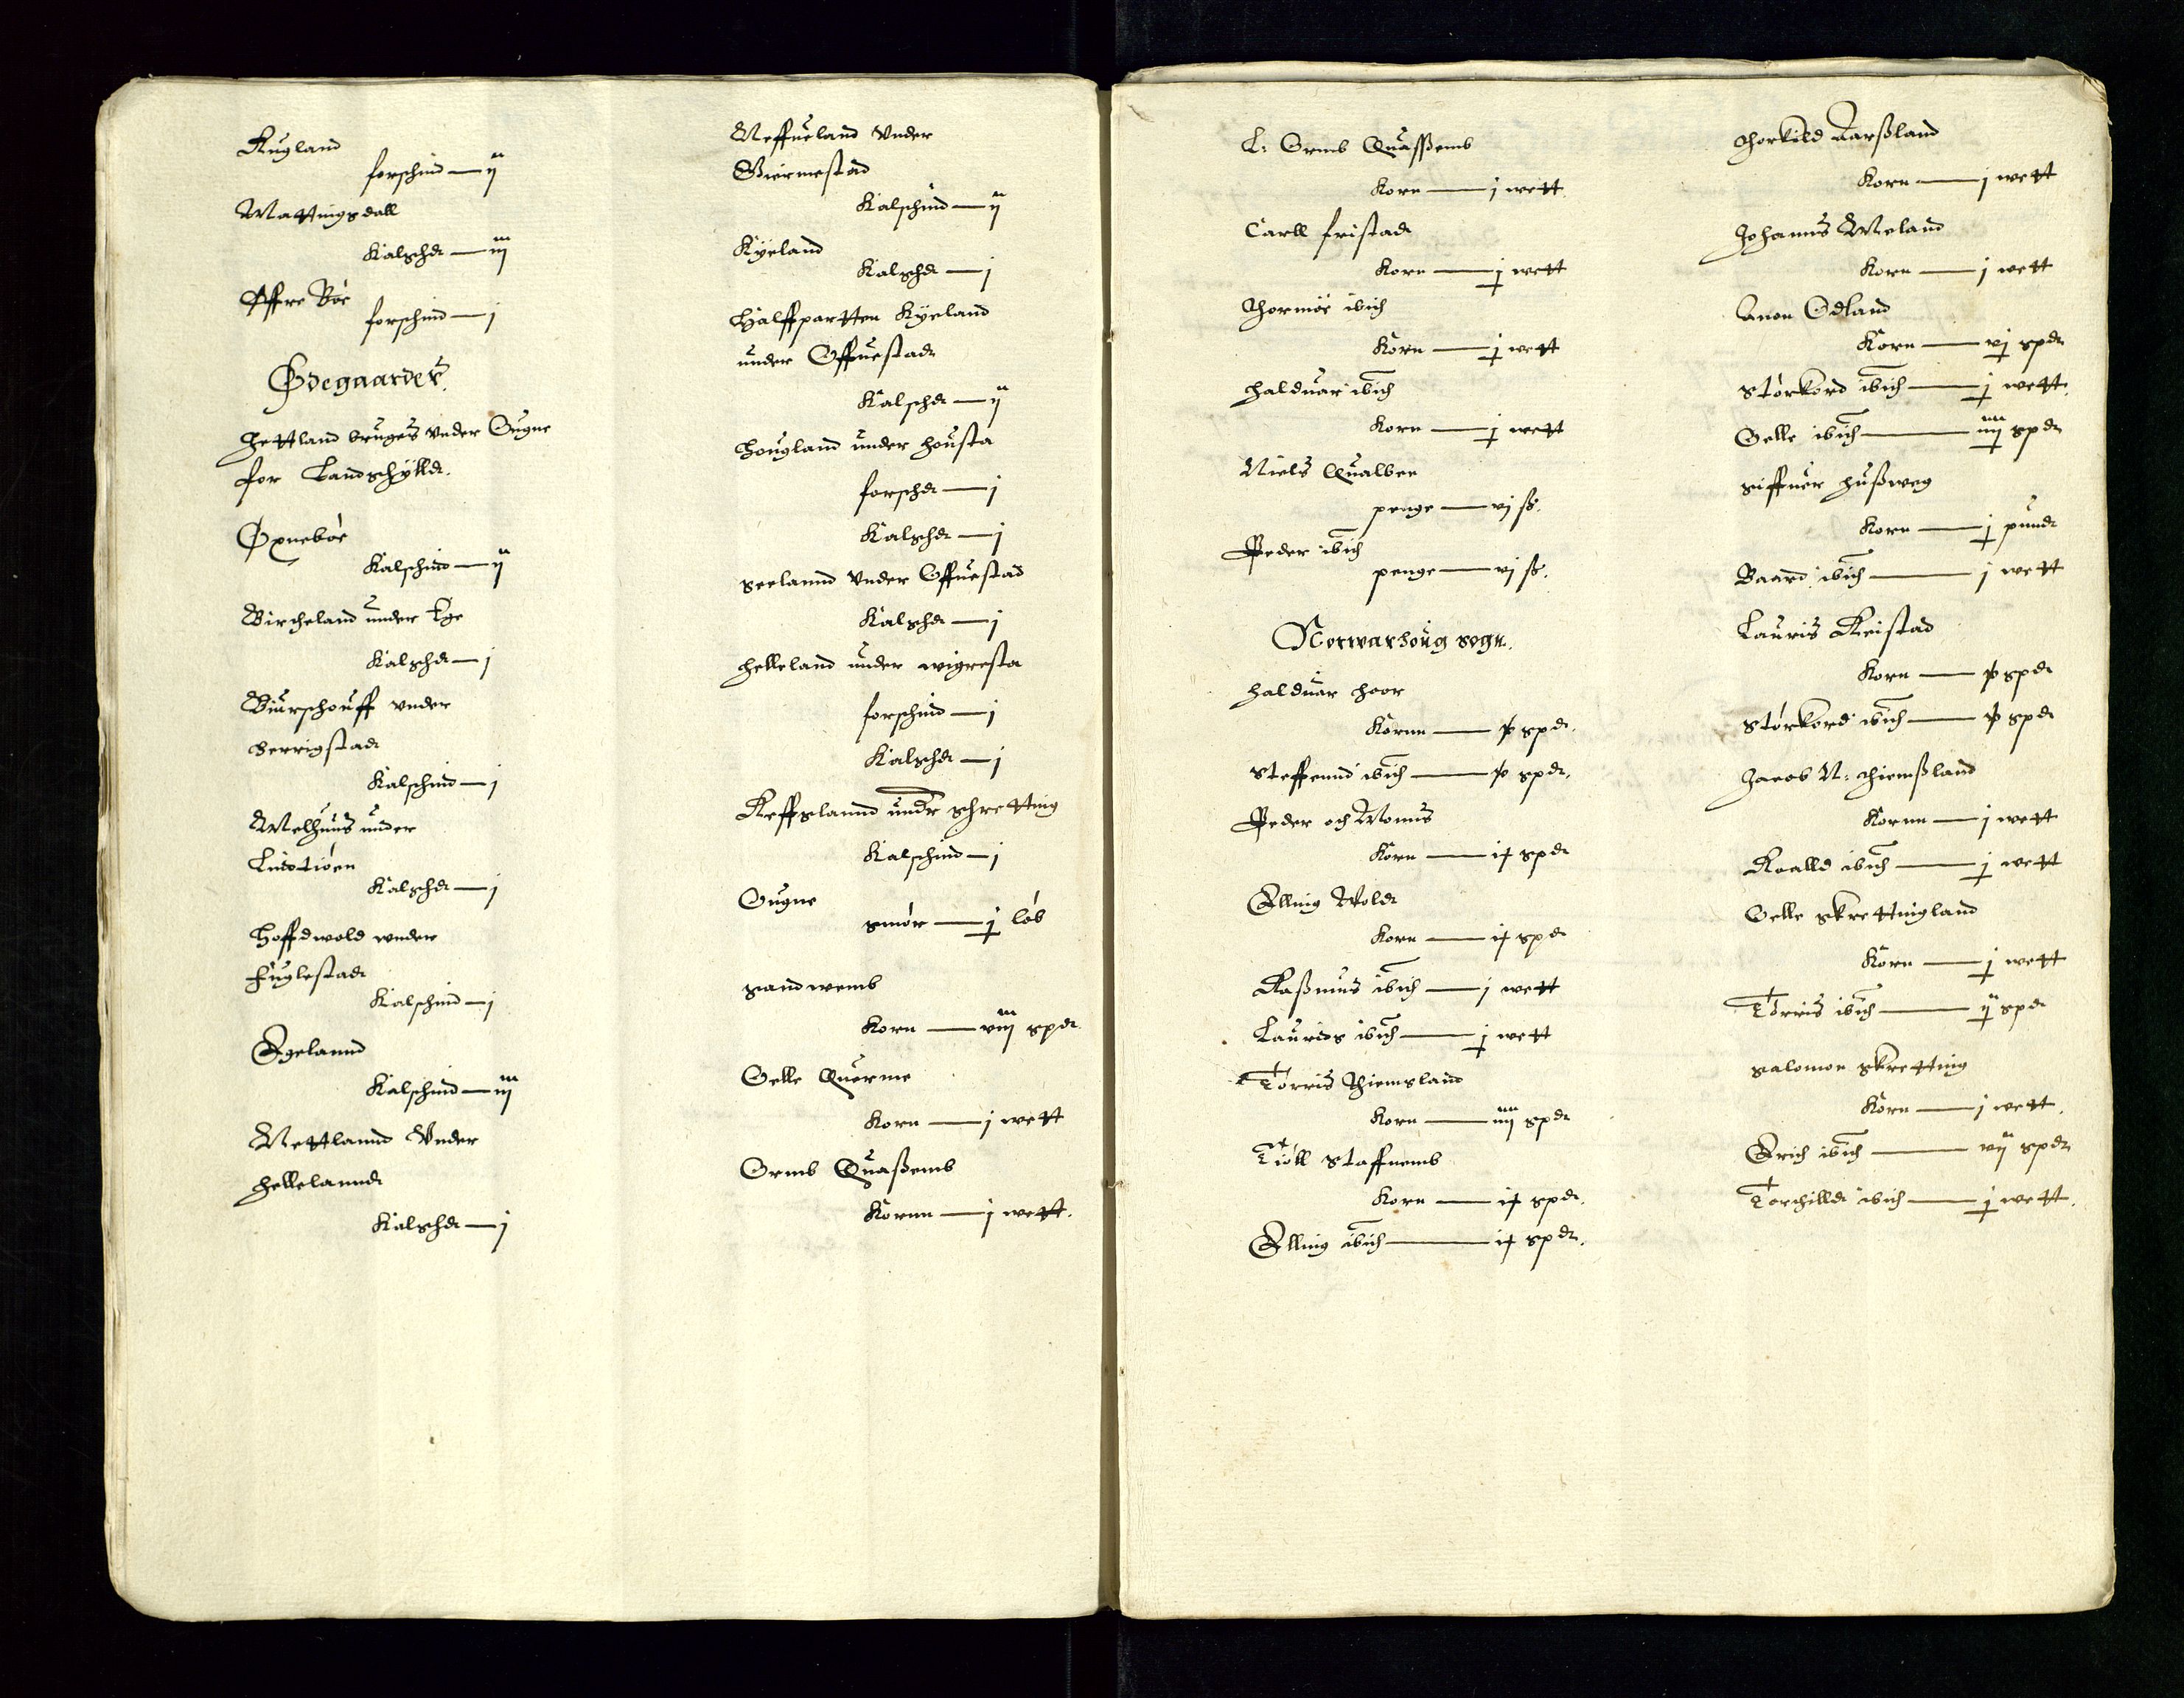 Rugland
forschind — ij
Mattingsdall
Kalschd — iij
Øffre Böe
forschind — j
Ødegaarder.
Hettland bruges vnder Ougne
for Landschylld.
Øxneböe
Kalschind — ij
Bircheland under Ege
Kalschd — j
Biurschouff vnder
herrigstad
Kalschind — j
Melhuus under
Kalschd — j
Hoffdwold wnder
Fuglestad
Kalschind — j
Egelannd
Kalschind — iij
Nettlannd Vnder
Hellelannd
Kalschd — j
Neffueland Vnder
Biermestad
Kalschind — ij
Kyeland
Kalschd — j
Halffpartten Kyeland
under Offuestad
Kalschd — ij
Hougland under housta
forschd — j
Kalschd — j
Seelannd Vnder Offuestad
Kalschd — j
Helleland under wigresta
forschind — j
Kalschd — j
Reffslannd undr schretting
Kalschind — j
Ougne
smör — j löb
Sandwemb
Korn — viij spd
Gelle Querme
Korn — j wett
Ormb Quaßemb
Kornn — j wett.
L: Ormb Quasßemb
Korn — j wett
Carll fristad
Korn — j wett
Thormöe ibid
Korn — j wett
Halduar ibid
Korn — j wett
Niels Qualben
penge — vj ß.
Peder ibid
penge — vj ß.
Norwarhoug sogn.
Halduar hoor
Kornn — spd.
Steffennd ibid — spd.
Peder och Monns
Korn — spd
Elling Wold
Korn — spd
Raßmus ibid — j wett
Laurids ibid — j wett
Torris Thiemsland
Korn — iiij spd
Tioll Staffnemb
Korn — spd.
Elling ibid — spd.
Thorkild Aarßland
Korn — j wett
Johannis Meland
Korn — j wett
Anon Odland
Korn — vj spd
Störkord ibid — j wett.
Gelle ibid — iiij spd
Siffuer Hußweg
Korn — j pund
Baard ibid — j wett
Lauris Reistad
Korn — spd
Störkord ibid — spd
Jacob N: Thiemßland
Kornn — j wett
Roalld ibid — j wett
Gelle skrettingland
Korn — j wett
Törris ibid — ij spd
Salomon skretting
Korn — j wett.
Erich ibid — vij spd
Torchilld ibid — j wett.